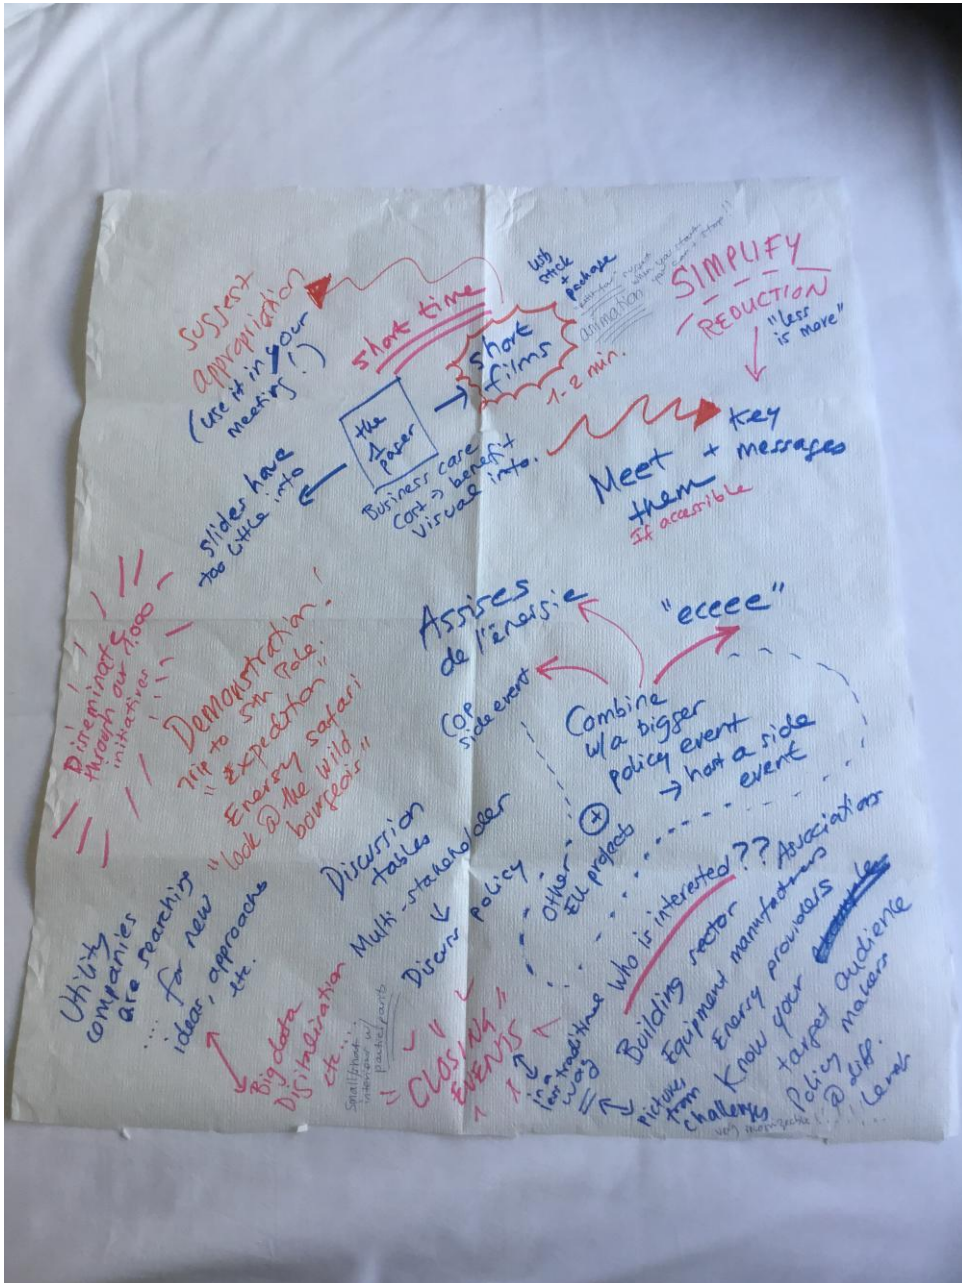 Suggest
appropriation
(use it in your
meeting!)
short time
short
films
1-2 min.
usb
stick
+
package
animation
when you start
you can't stop!!
SIMPLIFY
REDUCTION
"less
is more"
the
paper
Business case
cost → benefit
visual info.
slides have
too little info
key
messages
Meet +
them
If accessible
Disseminate
through our 1.000
initiatives
Demonstration!
Trip to 5th Pole!
"Expedition"
Energy safari!
"look @ the wild
bourgeois"
Assises
de l'énergie
"eceee"
COP
side event
Combine
w/a bigger
policy event
→ host a side
event
+
Other
EU projects
Discussion
tables
Multi-stakeholder
Discuss policy
Utility
companies
are searching
.... for new
ideas, approaches
etc.
Big data
Digitalisation
etc...
participants
"CLOSING"
EVENTS
in a
way
=
pictures
from
challenges
Who is interested??
Building sector
Equipment manufacturers
Associations
Energy providers
Know your
target audience
Policy makers
@ diff.
levels